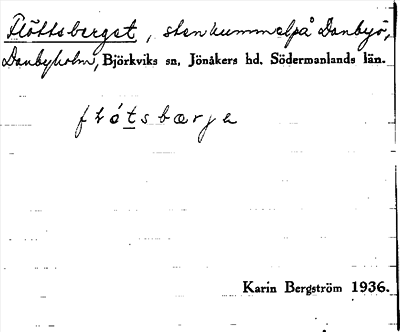 Flöttsberget, stenkummel på Danbyö,
Danbyholm, Björkviks sn, Jönåkers hd. Södermanlands län.
flótsbærja
Karin Bergström 1936.